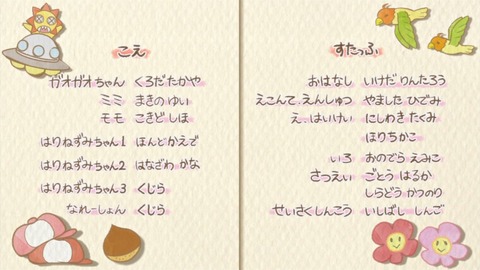 こえ
ガオガオちゃん くろだ たかや
ミミ まきの ゆい
モモ こきど しほ
はりねずみちゃん1 ほんど かえで
はりねずみちゃん2 はなざわ かな
はりねずみちゃん3 くじら
なれーしょん くじら
すたっふ
おはなし いけだ りんたろう
えこんて.えんしゅつ やました ひでみ
え.はいけい にしわき たくみ
ほり ちかこ
いろ おのでら えみこ
さつえい ごとう はるか
しらどう かつのり
せいさくしんこう いしばし しんご